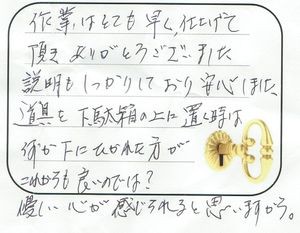 作業はとても早く、仕上げて
頂きありがとうございました
説明もしっかりしており安心しました
道具を下駄箱の上に置く時は
何か下にひかれた方が
これからも良いのでは?
優しい心が感じられると思いますから。